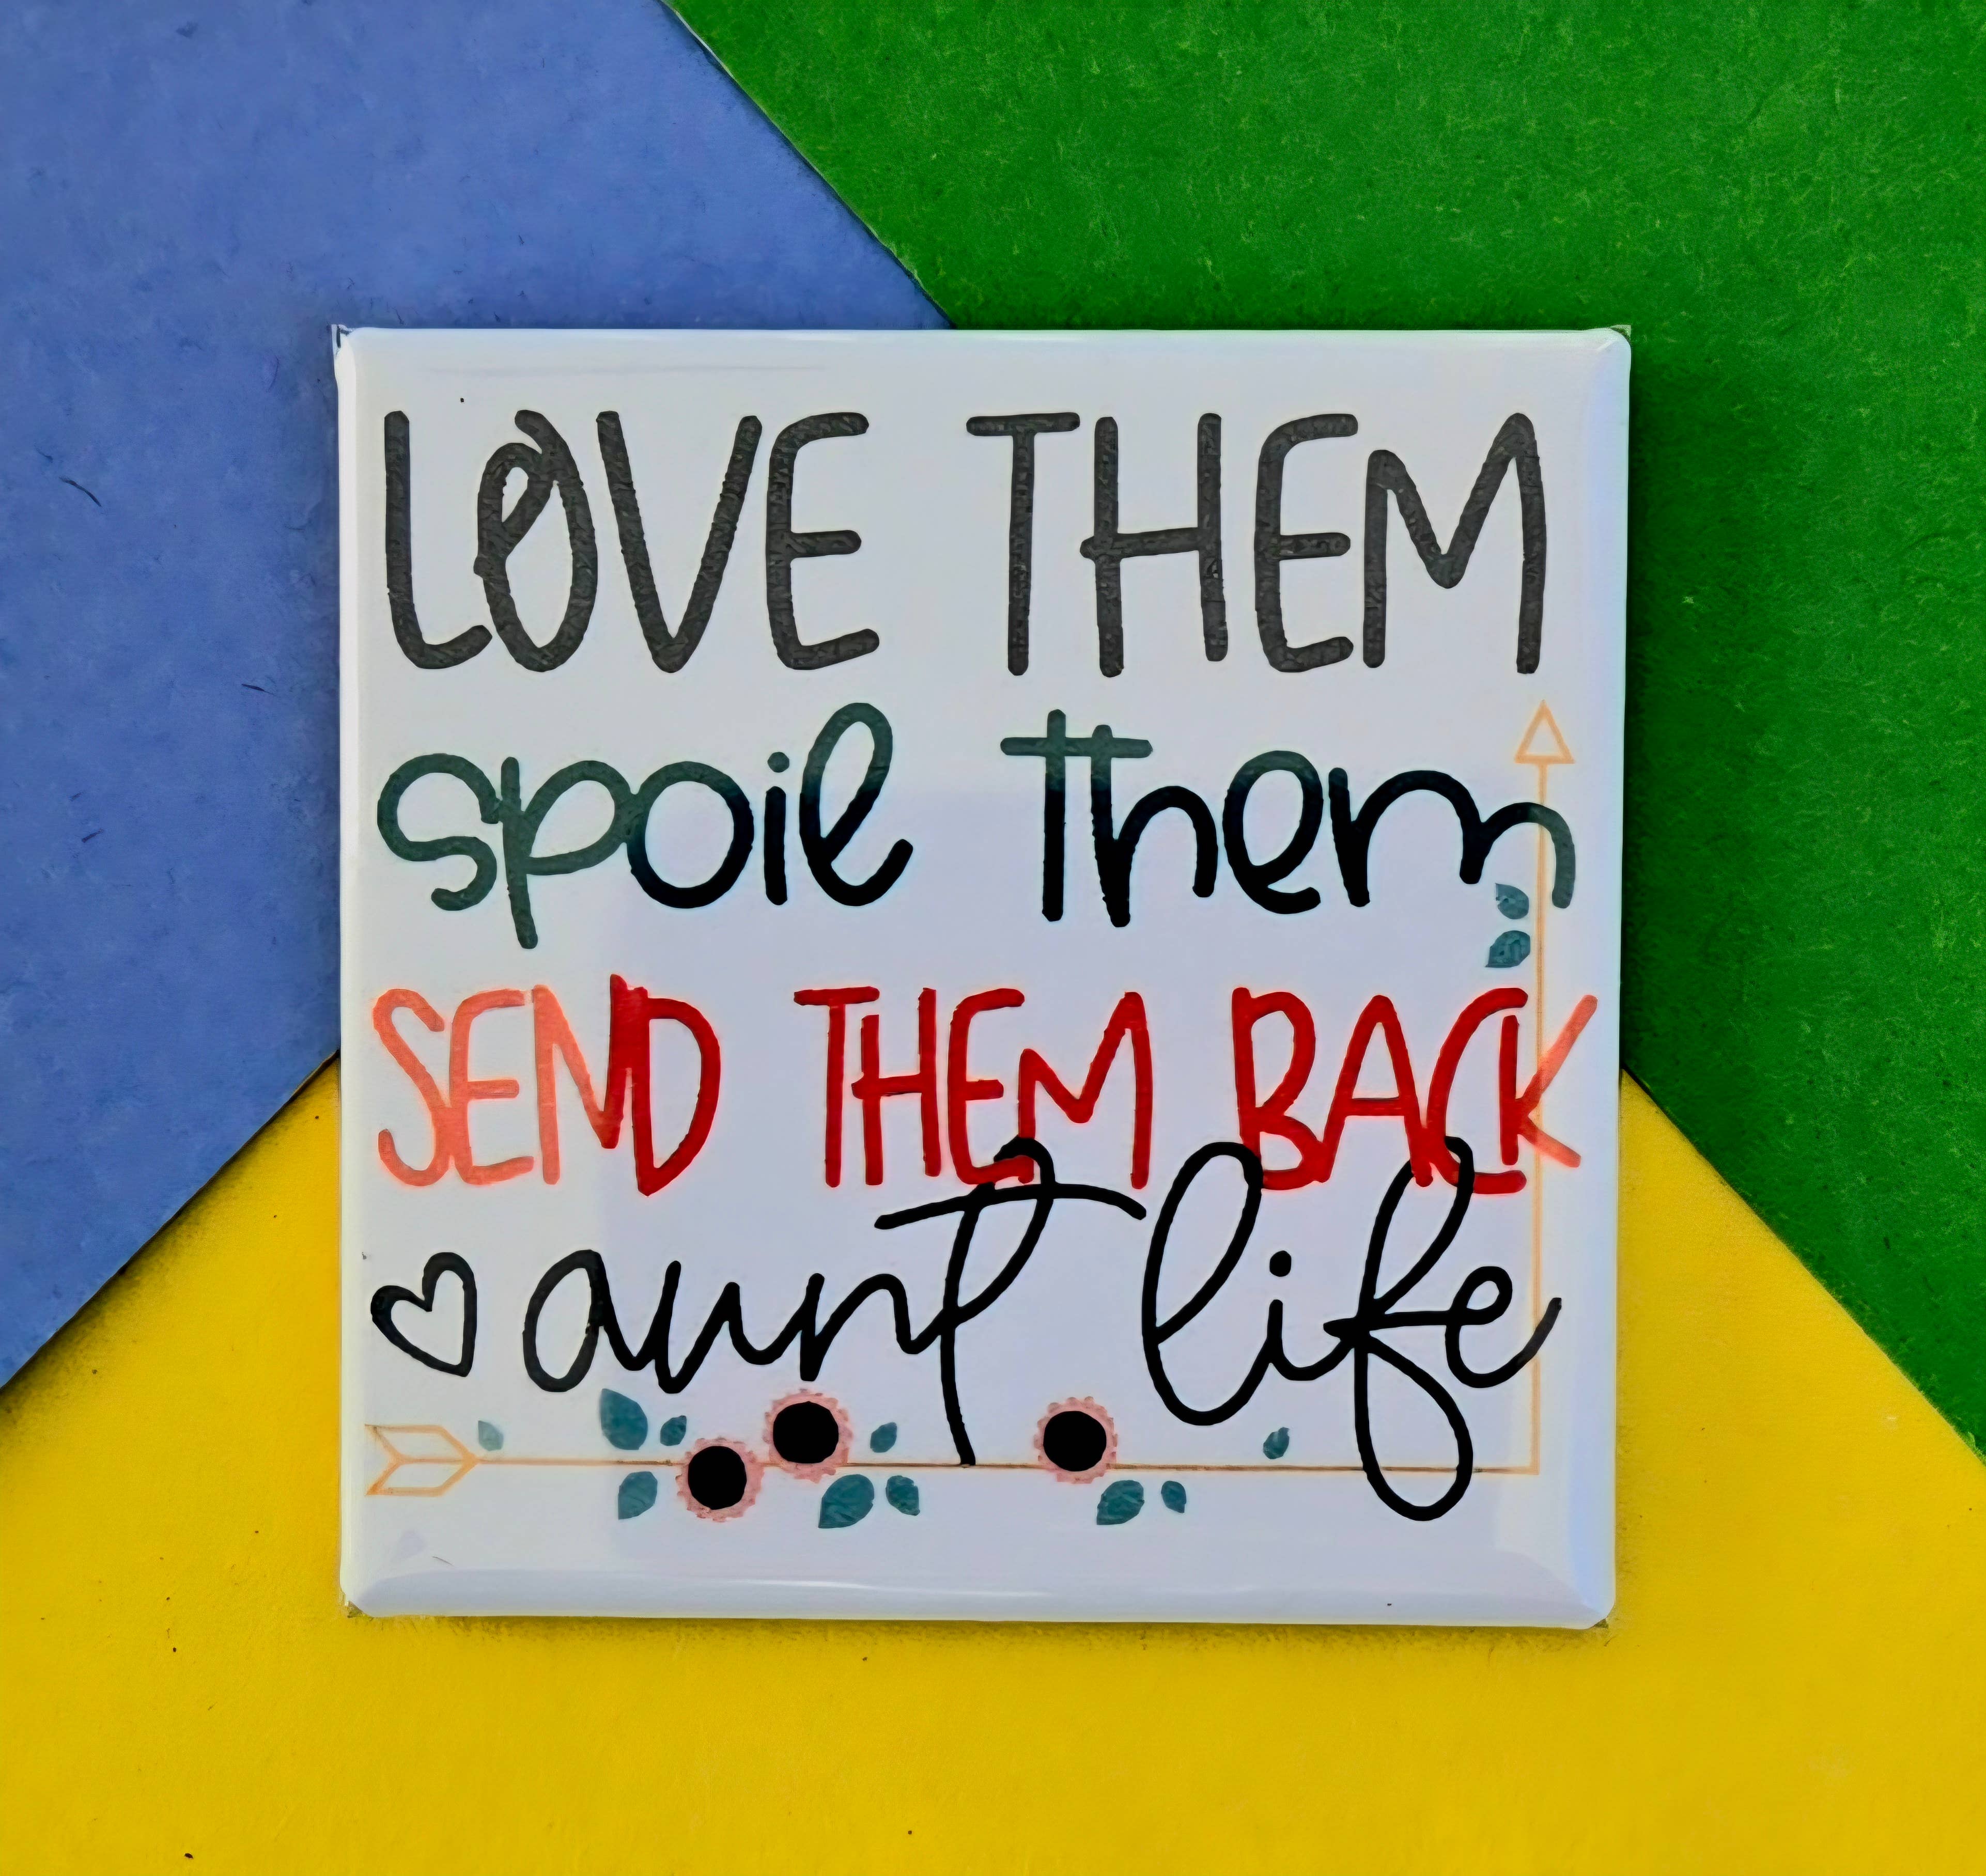 LOVE THEM
spoil them
SEND THEM BACK
aunt life